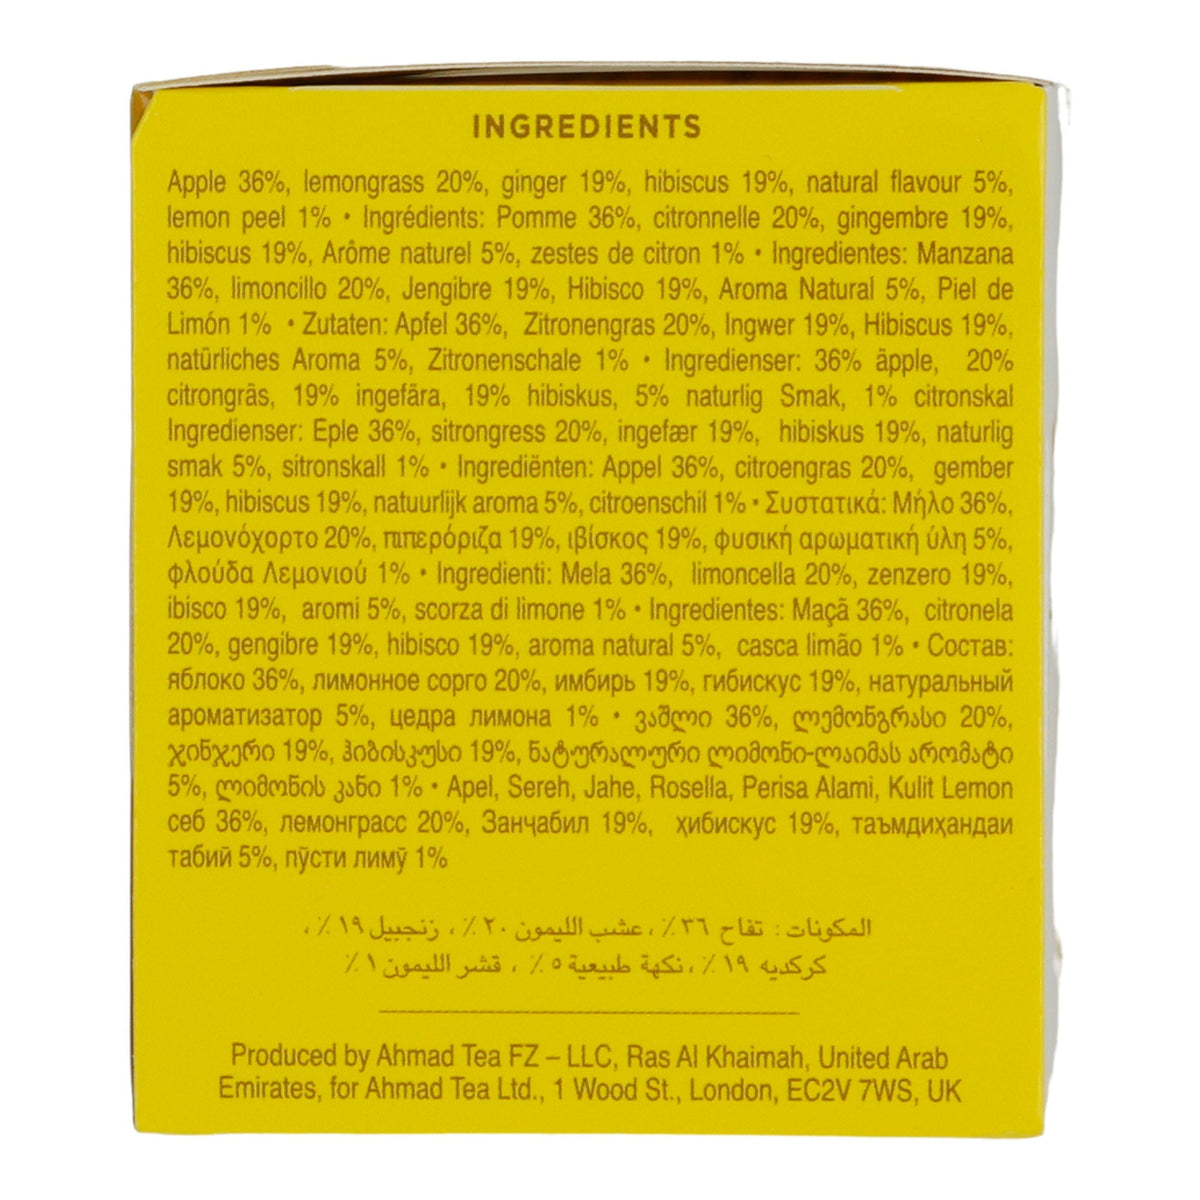 INGREDIENTS
Apple 36%, lemongrass 20%, ginger 19%, hibiscus 19%, natural flavour 5%,
lemon peel 1% • Ingrédients: Pomme 36%, citronnelle 20%, gingembre 19%,
hibiscus 19%, Arôme naturel 5%, zestes de citron 1% • Ingredientes: Manzana
36%, limoncillo 20%, Jengibre 19%, Hibisco 19%, Aroma Natural 5%, Piel de
Limón 1% • Zutaten: Apfel 36%, Zitronengras 20%, Ingwer 19%, Hibiscus 19%,
natürliches Aroma 5%, Zitronenschale 1% • Ingredienser: 36% äpple, 20%
citrongräs, 19% ingefära, 19% hibiskus, 5% naturlig Smak, 1% citronskal
Ingredienser: Eple 36%, sitrongress 20%, ingefær 19%, hibiskus 19%, naturlig
smak 5%, sitronskall 1% • Ingrediënten: Appel 36%, citroengras 20%, gember
19%, hibiscus 19%, natuurlijk aroma 5%, citroenschil 1% • Συστατικά: Μήλο 36%,
Λεμονόχορτο 20%, πιπερόριζα 19%, ιβίσκος 19%, φυσική αρωματική ύλη 5%,
φλούδα Λεμονιού 1% • Ingredienti: Mela 36%, limoncella 20%, zenzero 19%,
ibisco 19%, aromi 5%, scorza di limone 1% • Ingredientes: Maçã 36%, citronela
20%, gengibre 19%, hibisco 19%, aroma natural 5%, casca limão 1% • Состав:
яблоко 36%, лимонное сорго 20%, имбирь 19%, гибискус 19%, натуральный
ароматизатор 5%, цедра лимона 1% • ვაშლი 36%, ლემონგრასი 20%,
ჯინჯერი 19%, ჰიბისკუსი 19%, ნატურალური ლიმონი-ლაიმას არომატი
5%, ლიმონის კანი 1% • Apel, Sereh, Jahe, Rosella, Perisa Alami, Kulit Lemon
себ 36%, лемонграсс 20%, Занҷабил 19%, ҳибискус 19%, таъмдиҳандаи
табий 5%, пӯсти лимӯ 1%
المكونات: تفاح ٣٦٪، عشب الليمون ٢٠٪، زنجبيل ١٩٪،
كركديه ١٩٪، نكهة طبيعية ٥٪، قشر الليمون ١٪
Produced by Ahmad Tea FZ – LLC, Ras Al Khaimah, United Arab
Emirates, for Ahmad Tea Ltd., 1 Wood St., London, EC2V 7WS, UK